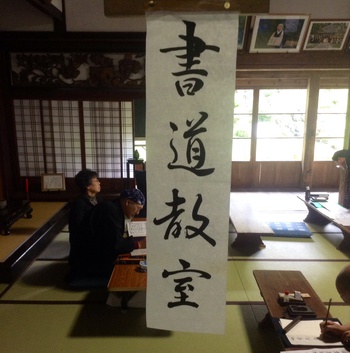 書道教室